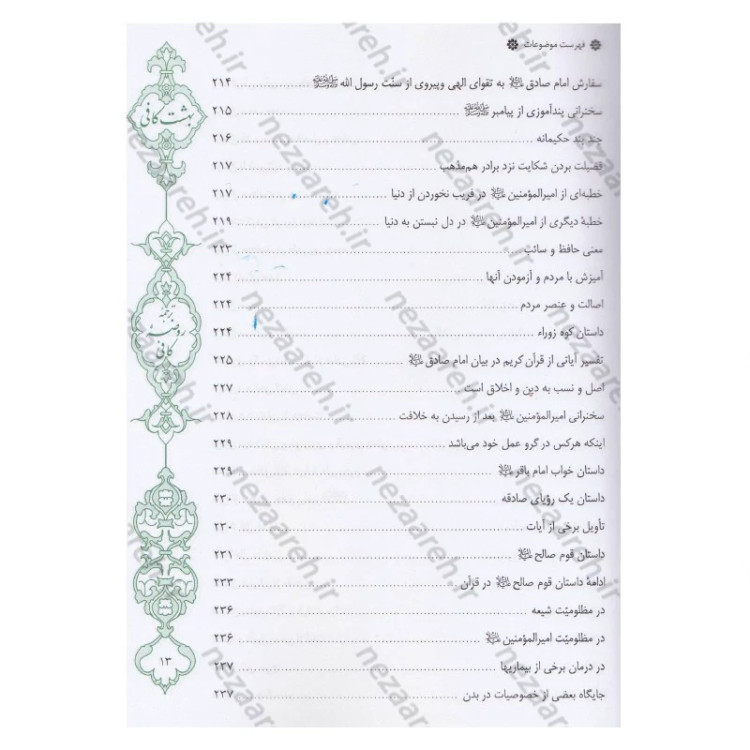 فهرست موضوعات
سفارش امام صادق علیه السلام به تقوای الهی وپیروی از سنّت رسول الله ﷺ ۲۱۴
سخنرانی پندآموزی از پیامبر ﷺ ۲۱۵
چند پند حکیمانه ۲۱۶
فضیلت بردن شکایت نزد برادر هم‌مذهب ۲۱۷
خطبه‌ای از امیرالمؤمنین علیه السلام در فریب نخوردن از دنیا ۲۱۷
خطبهٔ دیگری از امیرالمؤمنین علیه السلام در دل نبستن به دنیا ۲۱۹
معنی حافظ و سائب ۲۲۳
آمیزش با مردم و آزمودن آنها ۲۲۴
اصالت و عنصر مردم ۲۲۴
داستان کوه زوراء ۲۲۴
تفسیر آیاتی از قرآن کریم در بیان امام صادق علیه السلام ۲۲۵
اصل و نسب به دین و اخلاق است ۲۲۷
سخنرانی امیرالمؤمنین علیه السلام بعد از رسیدن به خلافت ۲۲۸
اینکه هرکس در گرو عمل خود می‌باشد ۲۲۹
داستان خواب امام باقر علیه السلام ۲۲۹
داستان یک رؤیای صادقه ۲۳۰
تأویل برخی از آیات ۲۳۰
داستان قوم صالح علیه السلام ۲۳۱
ادامهٔ داستان قوم صالح علیه السلام در قرآن ۲۳۳
در مظلومیّت شیعه ۲۳۶
در مظلومیّت امیرالمؤمنین علیه السلام ۲۳۶
در درمان برخی از بیماریها ۲۳۷
جایگاه بعضی از خصوصیات در بدن ۲۳۷
بهشت کافی
ترجمه
روضه
کافی
۱۳
nezaareh.ir